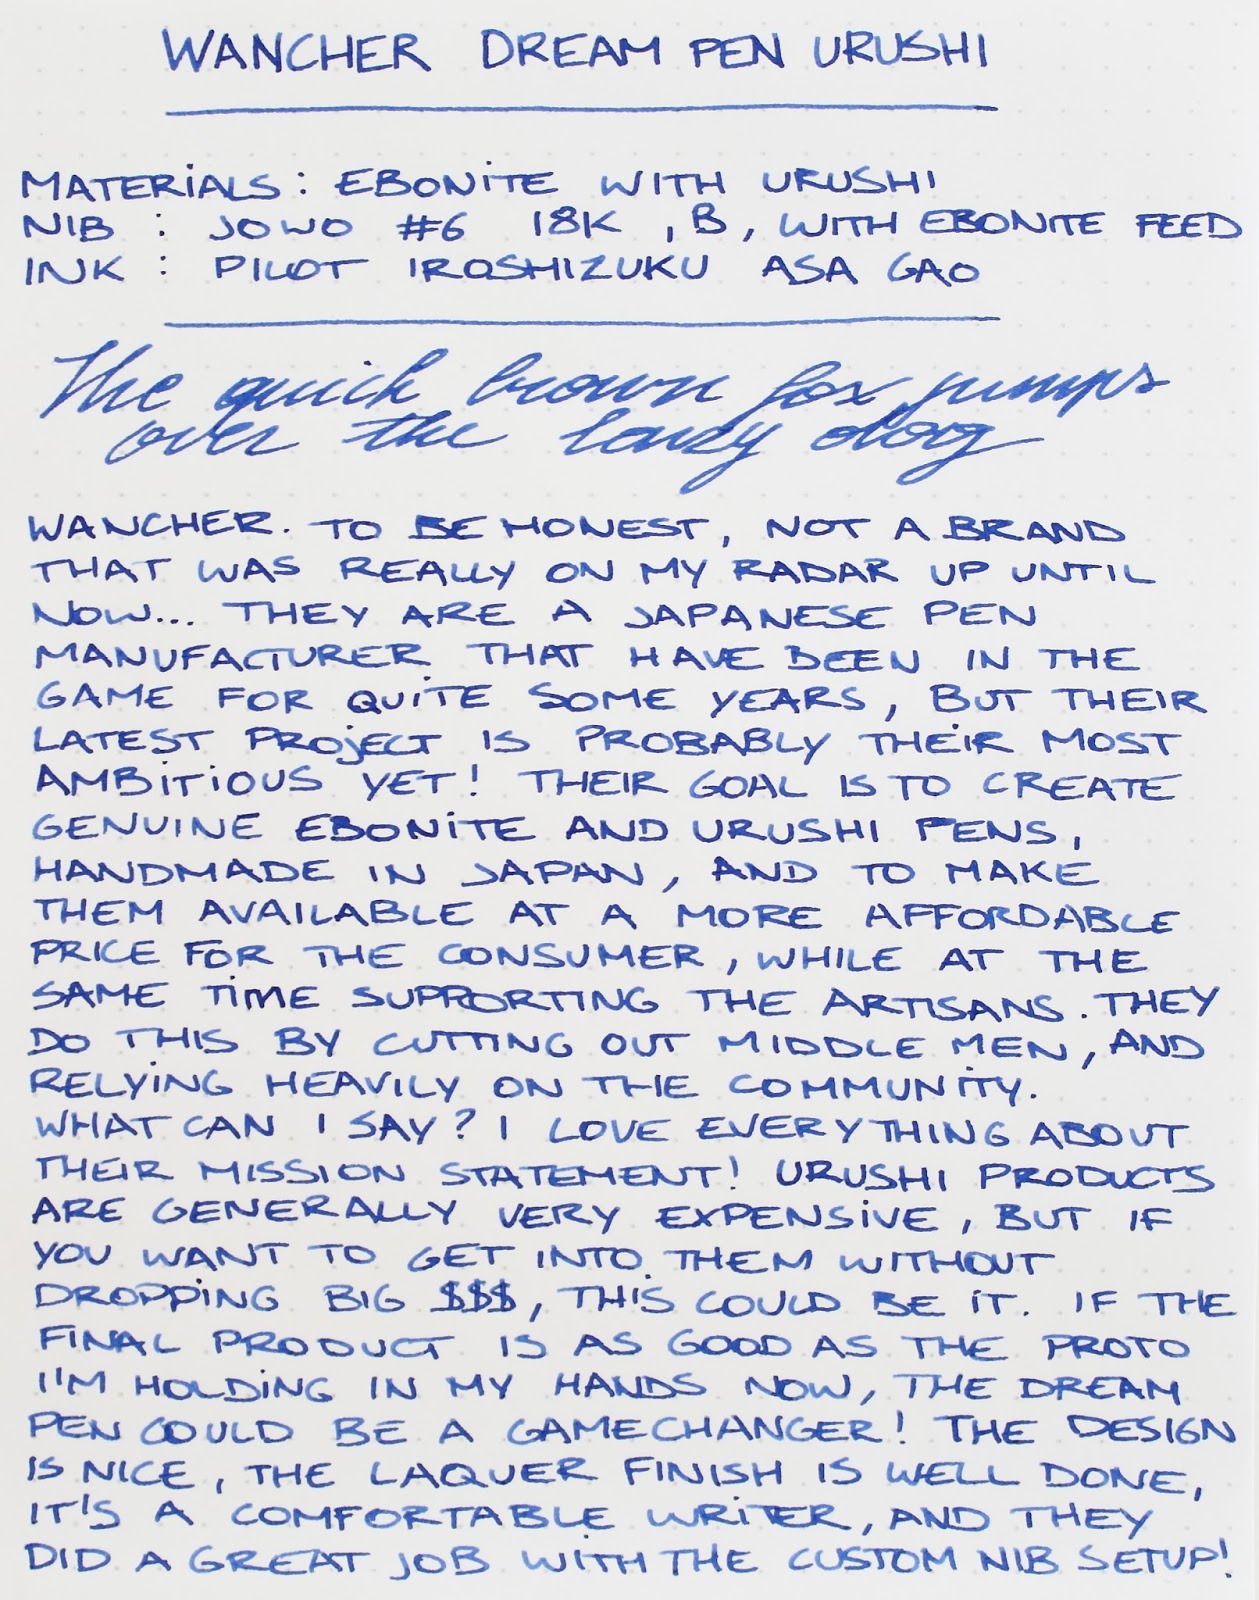 WANCHER DREAM PEN URUSHI
MATERIALS: EBONITE WITH URUSHI
NIB : JOWO #6 18K , B, WITH EBONITE FEED
INK : PILOT IROSHIZUKU ASA GAO
The quick brown fox jumps
over the lazy dog
WANCHER. TO BE HONEST, NOT A BRAND
THAT WAS REALLY ON MY RADAR UP UNTIL
NOW... THEY ARE A JAPANESE PEN
MANUFACTURER THAT HAVE BEEN IN THE
GAME FOR QUITE SOME YEARS, BUT THEIR
LATEST PROJECT IS PROBABLY THEIR MOST
AMBITIOUS YET! THEIR GOAL IS TO CREATE
GENUINE EBONITE AND URUSHI PENS,
HANDMADE IN JAPAN, AND TO MAKE
THEM AVAILABLE AT A MORE AFFORDABLE
PRICE FOR THE CONSUMER, WHILE AT THE
SAME TIME SUPPORTING THE ARTISANS. THEY
DO THIS BY CUTTING OUT MIDDLE MEN, AND
RELYING HEAVILY ON THE COMMUNITY.
WHAT CAN I SAY? I LOVE EVERYTHING ABOUT
THEIR MISSION STATEMENT! URUSHI PRODUCTS
ARE GENERALLY VERY EXPENSIVE, BUT IF
YOU WANT TO GET INTO THEM WITHOUT
DROPPING BIG $$$, THIS COULD BE IT. IF THE
FINAL PRODUCT IS AS GOOD AS THE PROTO
I'M HOLDING IN MY HANDS NOW, THE DREAM
PEN COULD BE A GAMECHANGER! THE DESIGN
IS NICE, THE LAQUER FINISH IS WELL DONE,
IT'S A COMFORTABLE WRITER, AND THEY
DID A GREAT JOB WITH THE CUSTOM NIB SETUP!